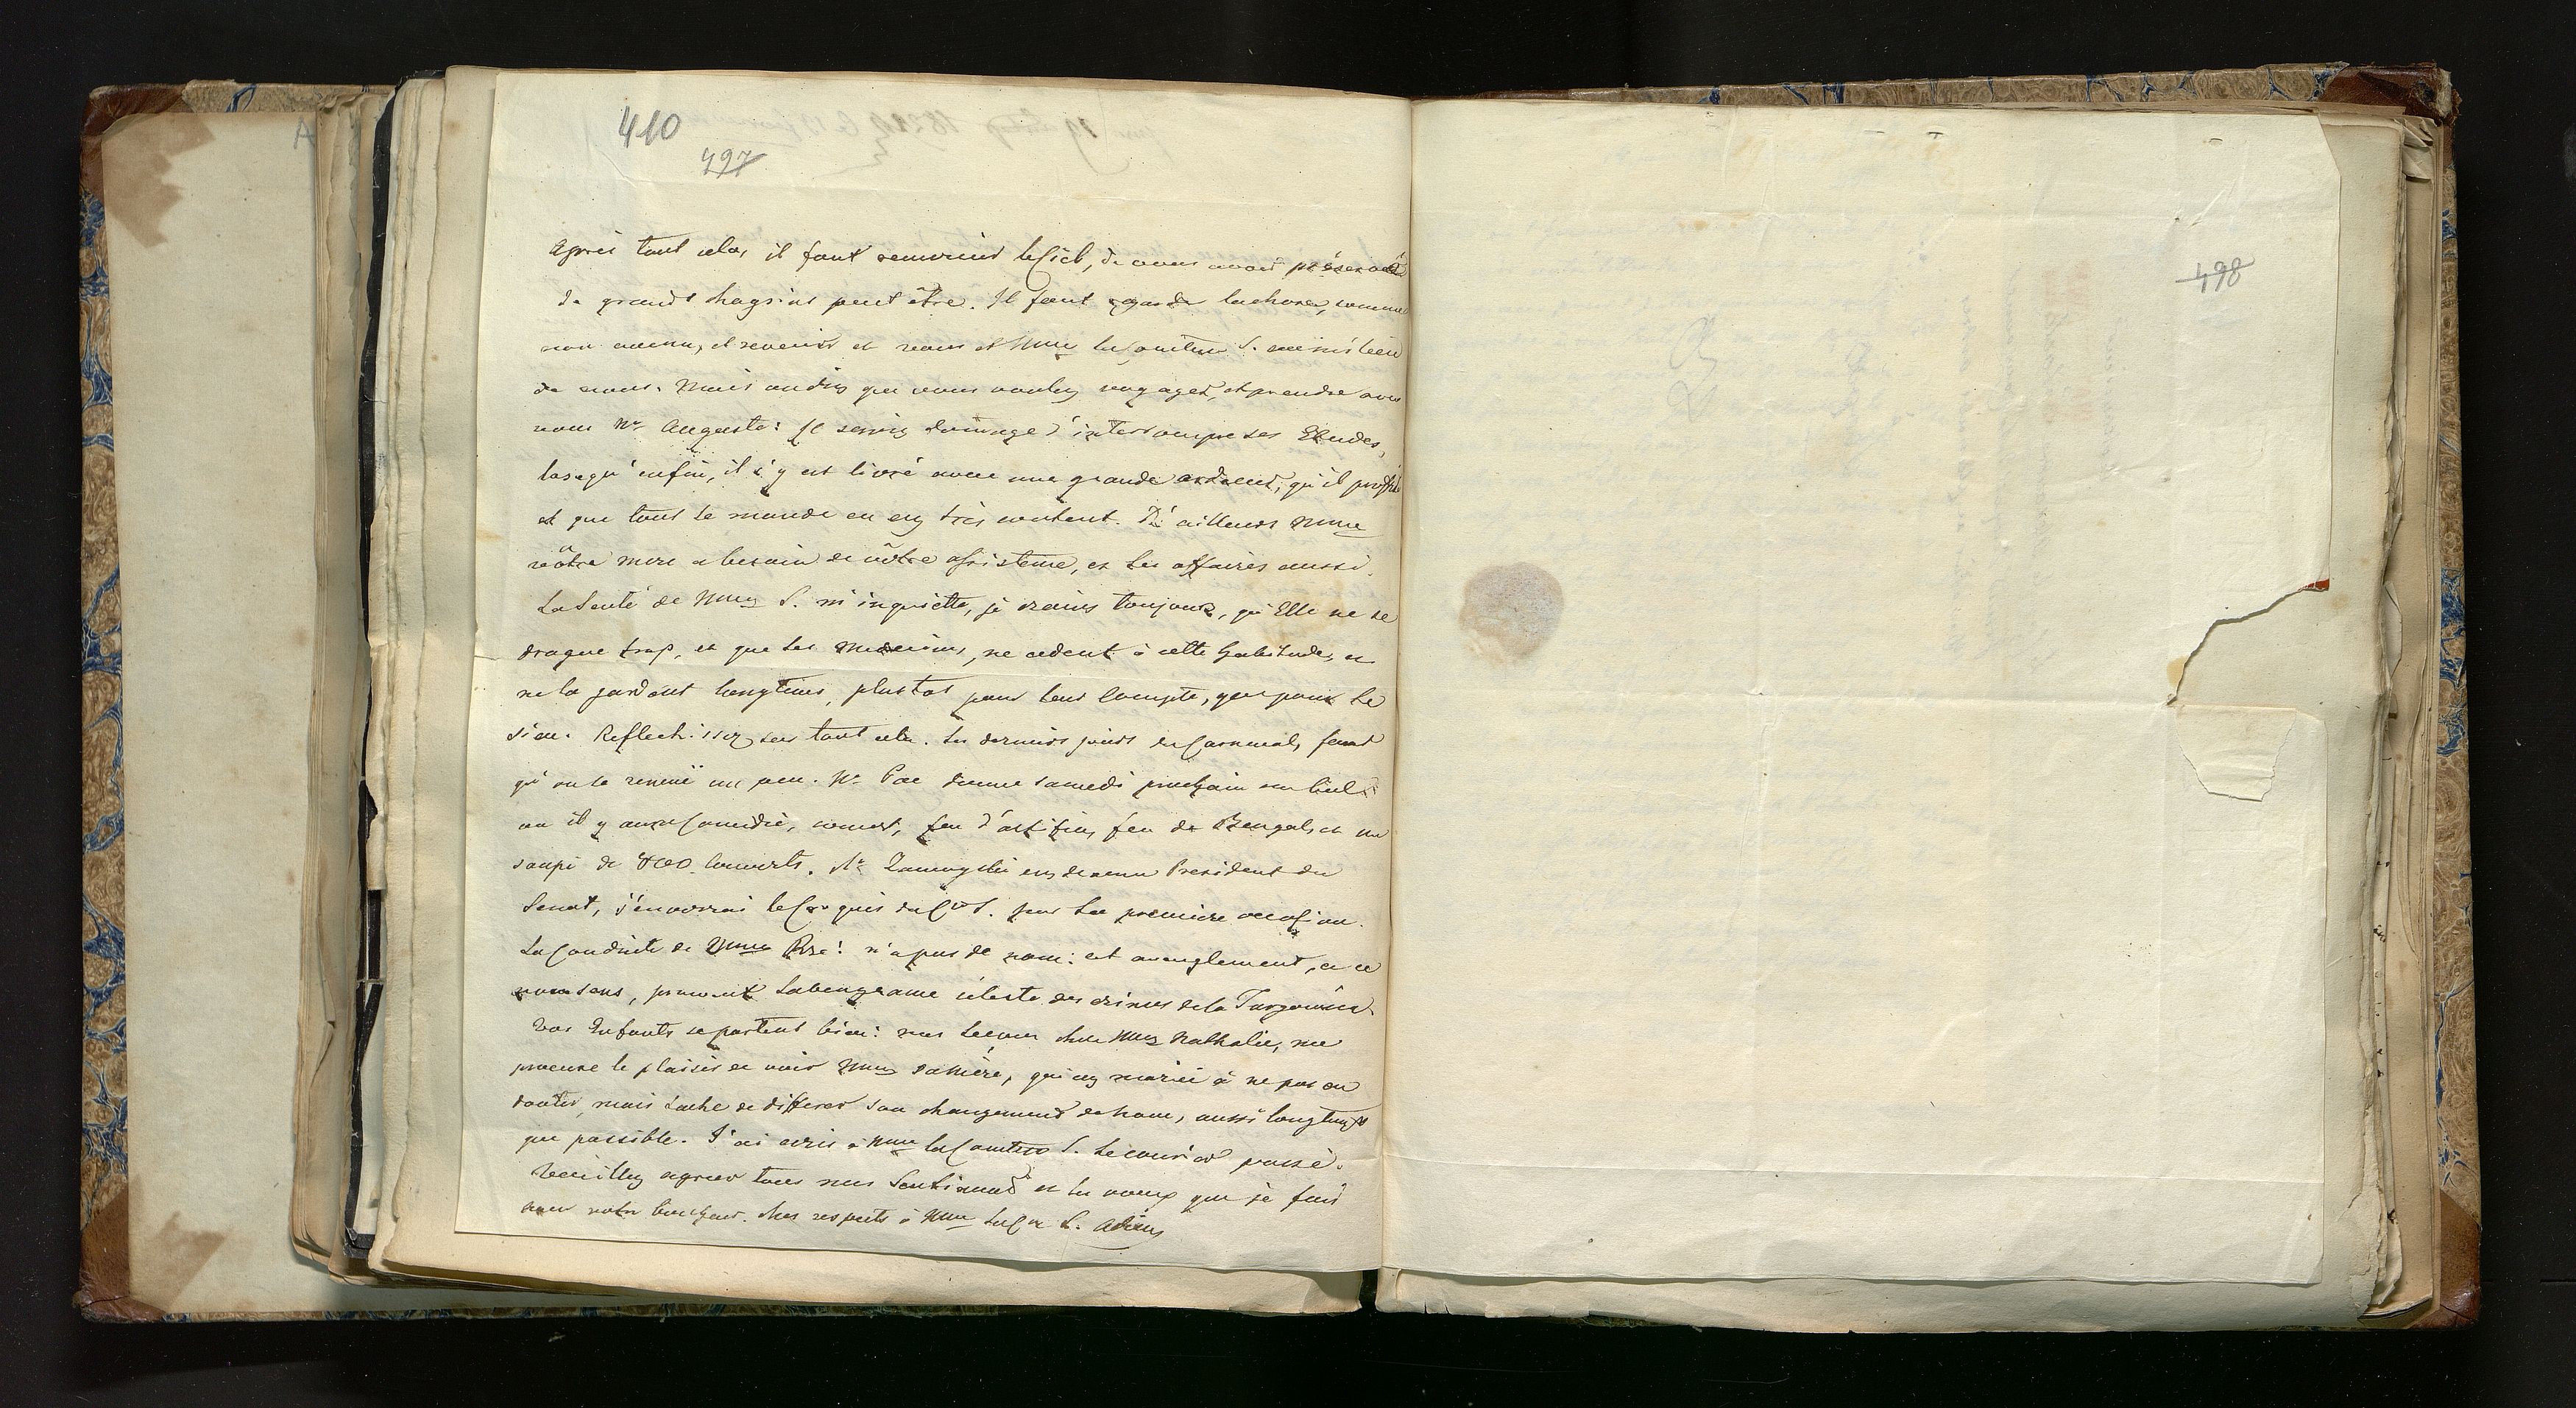 410
497
Après tout cela, il faut remercier le Ciel, de vous avoir préservé
de grands chagrins peut être. Il faut regarder la chose, comme
non avenu, et revenir et vous et Mme la Comtesse S.
de nous. Mais on dis que vous voulez voyager, et prendre avec
vous Mr Auguste: Ce serais dommage d'interrompre ses Etudes,
lorsqu'enfin, il s'y est livré avec une grande ardeur, qu'il profite
et que tout le monde en es très content. D'ailleurs Mme
vôtre mere a besoin de vôtre assistence, et les affaires aussi.
La Santé de Mme S. m'inquiette, je crains toujours, qu'Elle ne se
drogue trop, et que les medecins, ne cedent à cette habitude, et
ne la gardent longtems, plustot pour leur Compte, que pour le
sien. Reflechissez sur tout cela. Les derniers jours du Carnaval, font
qu'on se remuë un peu. Mr Pac donne samedi prochain un bal
ou il y aura Comedie, concert, feu d'artifice, feu de Bengal, et un
soupé de 800 Couverts. Mr Zamoyski es devenu President du
Senat, j'enverrai le Croquis du Cte S. par la premiere occasion.
La Conduite de Mme n'a pas de nom: cet aveuglement, et ce
non sens, prouvent la vengeance céleste des crimes de la
Vos Enfants se portent bien: mes chez Mme Nathalie, me
procure le plaisir de voir Mme Saniere, qui es mariée à ne pas en
douter, mais tache de differer son changement de nom, aussi longtems
que possible. J'ai ecris à Mme la Comtesse S. le courier passé.
Veuillez agreer tous mes Sentimens et les voeux que je fais
pour votre bonheur. Mes respects à Mme la Cte S. Adieu
498